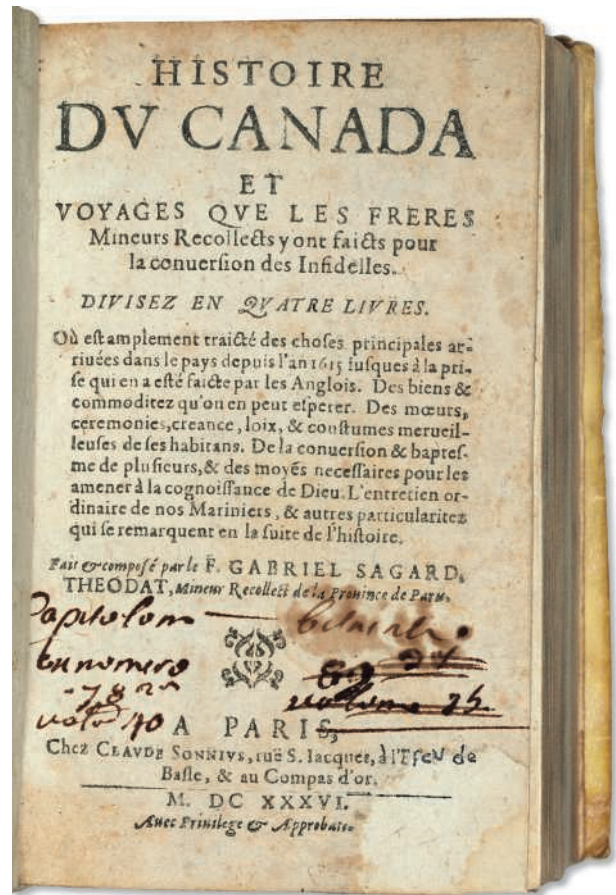 HISTOIRE
DV CANADA
ET
VOYAGES QVE LES FRERES
Mineurs Recollects y ont faicts pour
la conuersion des Infidelles.
DIVISEZ EN QVATRE LIVRES.
Où est amplement traicté des choses principales ar-
riuées dans le pays depuis l'an 1615 iusques à la pri-
se qui en a esté faicte par les Anglois. Des biens &
commoditez qu'on en peut esperer. Des mœurs,
ceremonies, creance, loix, & coustumes merueil-
leuses de ses habitans. De la conuersion & baptes-
me de plusieurs, & des moyés necessaires pour les
amener à la cognoissance de Dieu. L'entretien or-
dinaire de nos Mariniers, & autres particularitez
qui se remarquent en la suite de l'histoire.
Fait & composé par le F. GABRIEL SAGARD,
THEODAT, Mineur Recollect de la Prouince de Paris.
nomero
A PARIS,
Chez CLAVDE SONNIVS, ruë S. Iacques, à l'Escu de
Basle, & au Compas d'or.
M. DC XXXVI.
Auec Priuilege & Approbatiō.